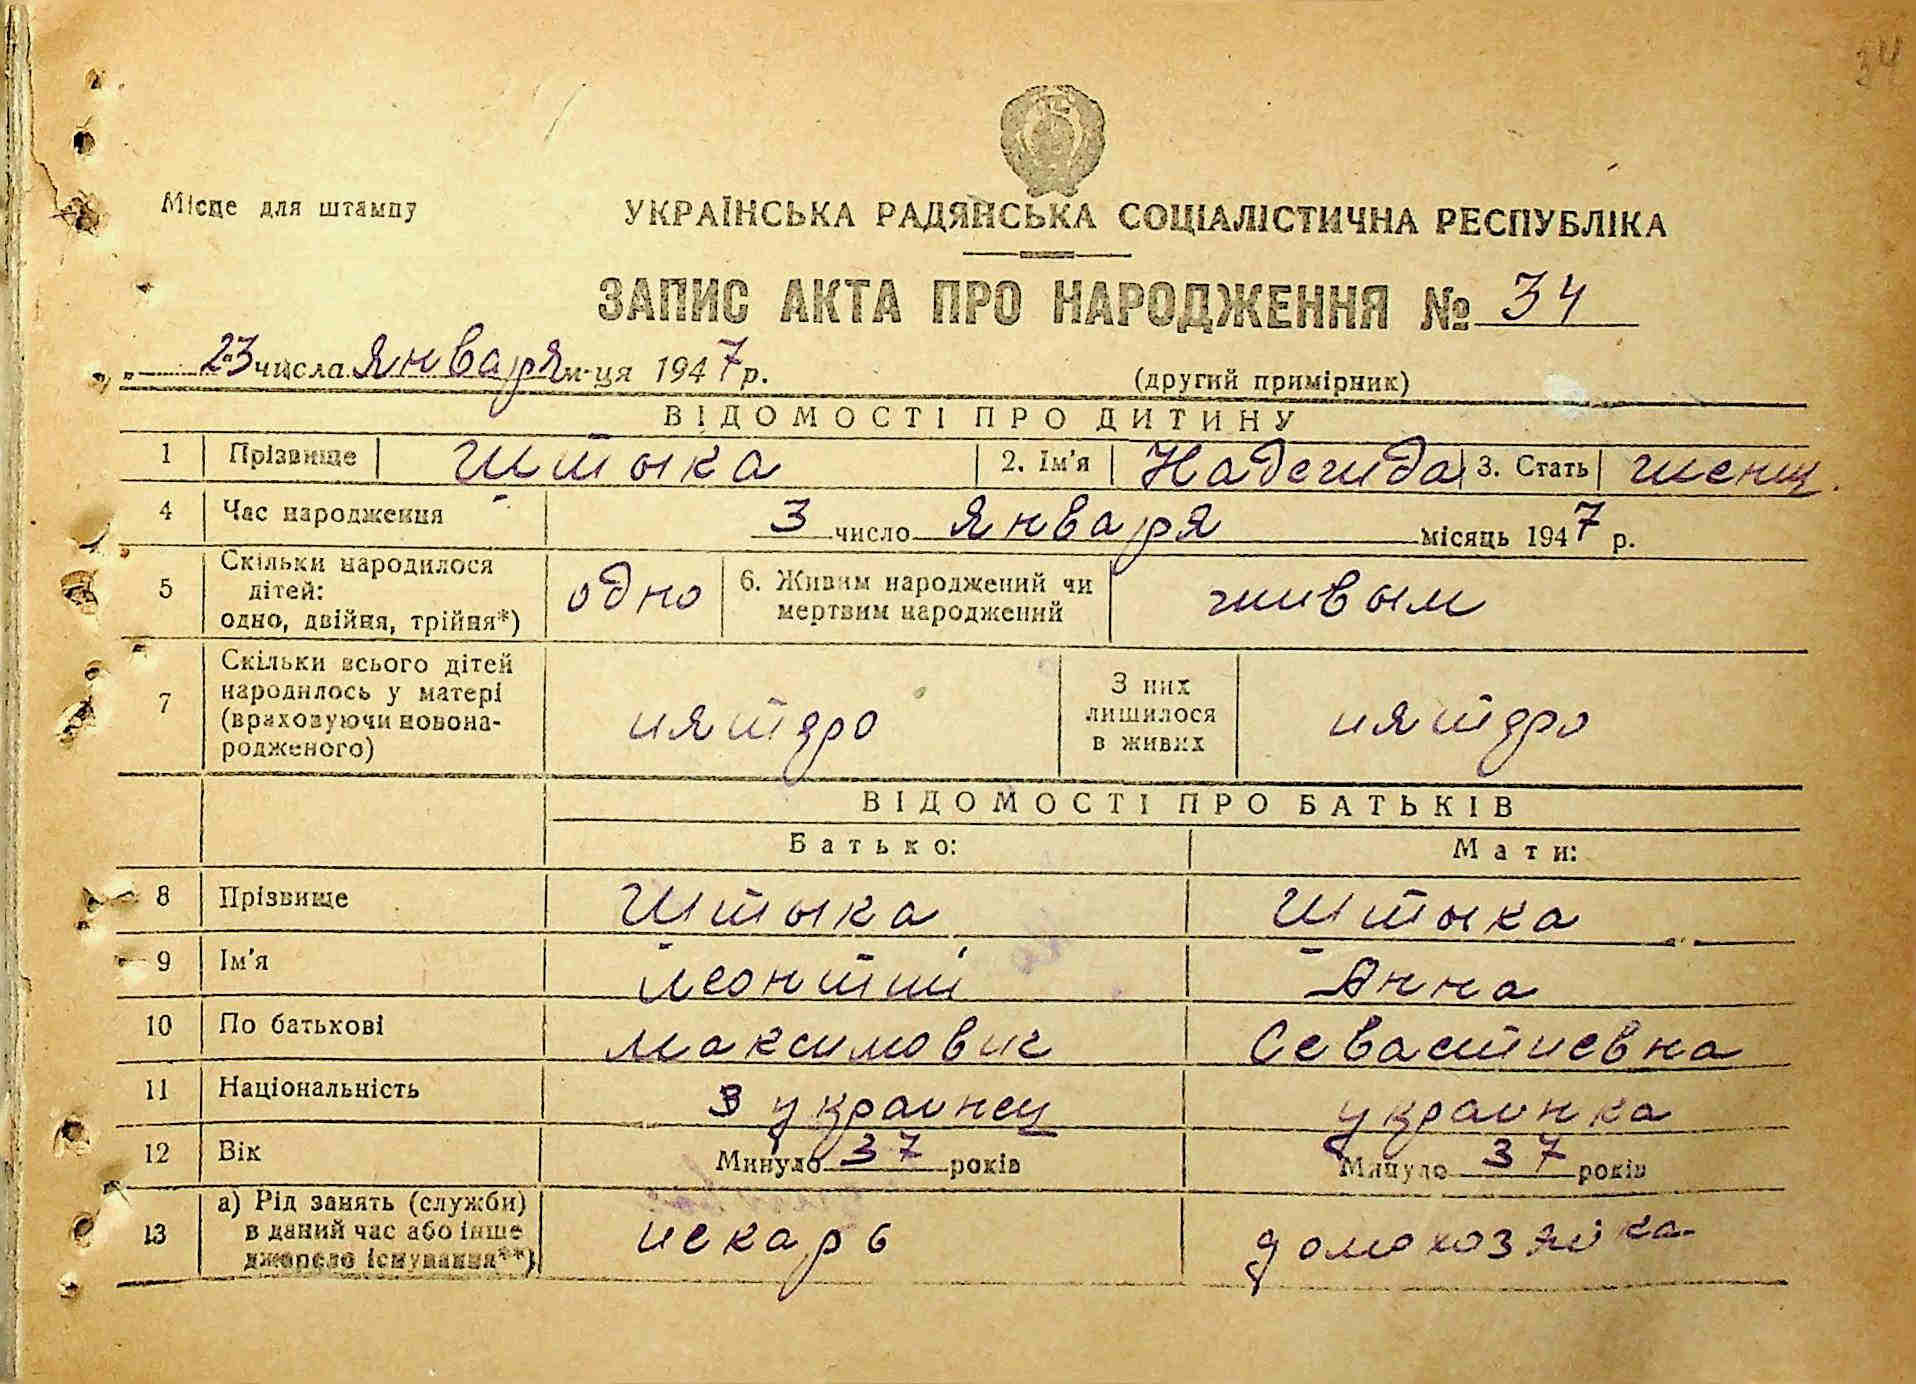 34
Місце для штампу
УКРАЇНСЬКА РАДЯНСЬКА СОЦІАЛІСТИЧНА РЕСПУБЛІКА
ЗАПИС АКТА ПРО НАРОДЖЕННЯ № 34
„ 23 числа января м-ця 1947 р.
(другий примірник)
ВІДОМОСТІ ПРО ДИТИНУ
1 Прізвище Штыка 2. Ім'я Надежда 3. Стать женщ.
4 Час народження 3 число января місяць 1947 р.
5 Скільки народилося
дітей:
одно, двійня, трійня*)
одно
6. Живим народжений чи
мертвим народжений
живым
7 Скільки всього дітей
народилось у матері
(враховуючи новона-
родженого)
пятеро
З них
лишилося
в живих
пятеро
ВІДОМОСТІ ПРО БАТЬКІВ
Батько: Мати:
8 Прізвище Штыка Штыка
9 Ім'я Леонтий Анна
10 По батькові Максимович Севастиевна
11 Національність украинец украинка
12 Вік Минуло 37 років Минуло 37 років
13 а) Рід занять (служби)
в даний час або інше
джерело існування**)
пекарь домохозяйка